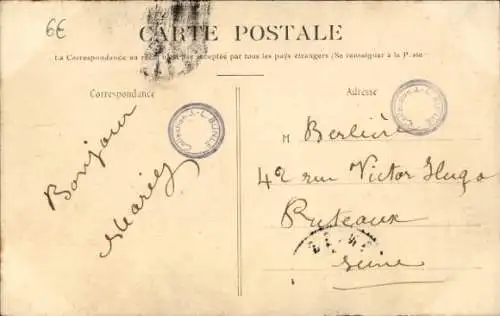 6€
CARTE POSTALE
La Correspondance au recto n'est pas acceptée par tous les pays étrangers (Se renseigner à la Poste)
Correspondance
Adresse
Collection A.-L.
Collection A.-L.
Bonjour
M Berlière
42 rue Victor Hugo
Puteaux
Seine